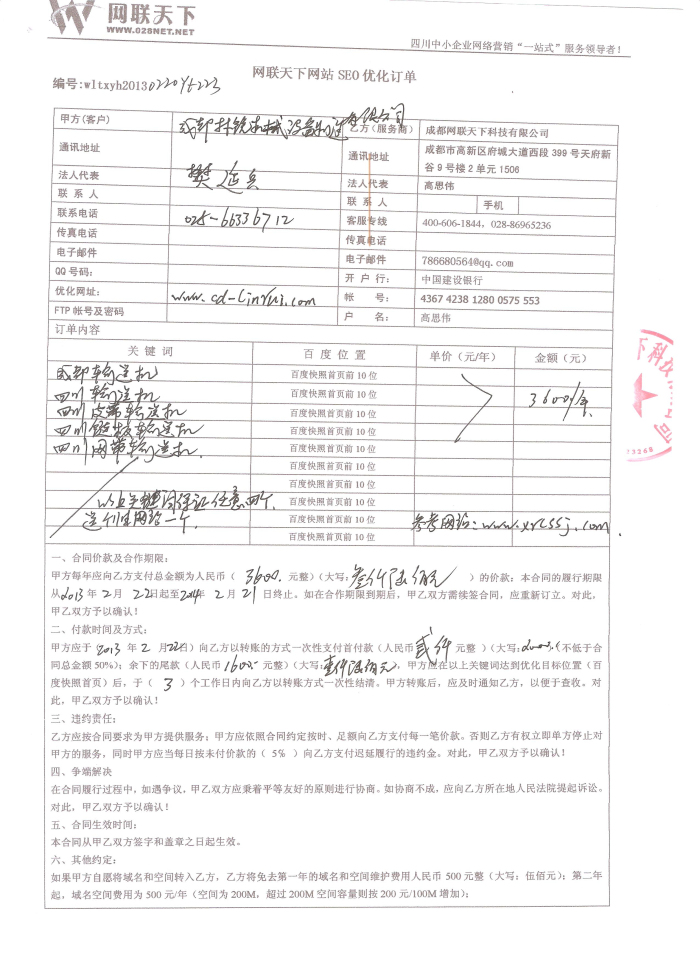 网联天下
WWW.028NET.NET
四川中小企业网络营销“一站式”服务领导者！
网联天下网站 SEO 优化订单
编号:wltxyh2013
甲方(客户) 成都林锐机械设备制造有限公司 乙方（服务商） 成都网联天下科技有限公司
通讯地址 通讯地址 成都市高新区府城大道西段 399 号天府新谷 9 号楼 2 单元 1506
法人代表 樊延兵 法人代表 高思伟
联 系 人 联 系 人 手机
联系电话 028-66336712 客服专线 400-606-1844，028-86965236
传真电话 传真电话
电子邮件 电子邮件 786680564@qq.com
QQ 号码： 开 户 行： 中国建设银行
优化网址： www.cd-linrui.com 帐 号： 4367 4238 1280 0575 553
FTP 帐号及密码 户 名： 高思伟
订单内容
关 键 词 百 度 位 置 单价（元/年） 金额（元）
成都输送机 百度快照首页前 10 位
四川输送机 百度快照首页前 10 位 3600/年
四川皮带输送机 百度快照首页前 10 位
四川链板输送机 百度快照首页前 10 位
四川网带输送机 百度快照首页前 10 位
百度快照首页前 10 位
百度快照首页前 10 位
以上关键词保证任意四个， 百度快照首页前 10 位
送 网站一个. 百度快照首页前 10 位 参考网站：
百度快照首页前 10 位
一、合同价款及合作期限：
甲方每年应向乙方支付总金额为人民币（ 3600. 元整）（大写：叁仟陆佰元 ）的价款；本合同的履行期限
从 2013 年 2 月 22 日起至 2014 年 2 月 21 日终止。如在合作期限到期后，甲乙双方需续签合同，应重新订立。对此，
甲乙双方予以确认！
二、付款时间及方式：
甲方应于 2013 年 2 月 22 日）向乙方以转账的方式一次性支付首付款（人民币 贰仟 元整 ）（大写： （不低于合
同总金额 50%）；余下的尾款（人民币 1600 元整）（大写：壹仟陆佰元），甲方应在以上关键词达到优化目标位置（百
度快照首页）后，于（ 3 ）个工作日内向乙方以转账方式一次性结清。甲方转账后，应及时通知乙方，以便于查收。对
此，甲乙双方予以确认！
三、违约责任：
乙方应按合同要求为甲方提供服务；甲方应依照合同约定按时、足额向乙方支付每一笔价款。否则乙方有权立即单方停止对
甲方的服务，同时甲方应当每日按未付价款的（ 5% ）向乙方支付迟延履行的违约金。对此，甲乙双方予以确认！
四、争端解决
在合同履行过程中，如遇争议，甲乙双方应秉着平等友好的原则进行协商。如协商不成，应向乙方所在地人民法院提起诉讼。
对此，甲乙双方予以确认！
五、合同生效时间：
本合同从甲乙双方签字和盖章之日起生效。
六、其他约定：
如果甲方自愿将域名和空间转入乙方，乙方将免去第一年的域名和空间维护费用人民币 500 元整（大写：伍佰元）；第二年
起，域名空间费用为 500 元/年（空间为 200M，超过 200M 空间容量则按 200 元/100M 增加）；